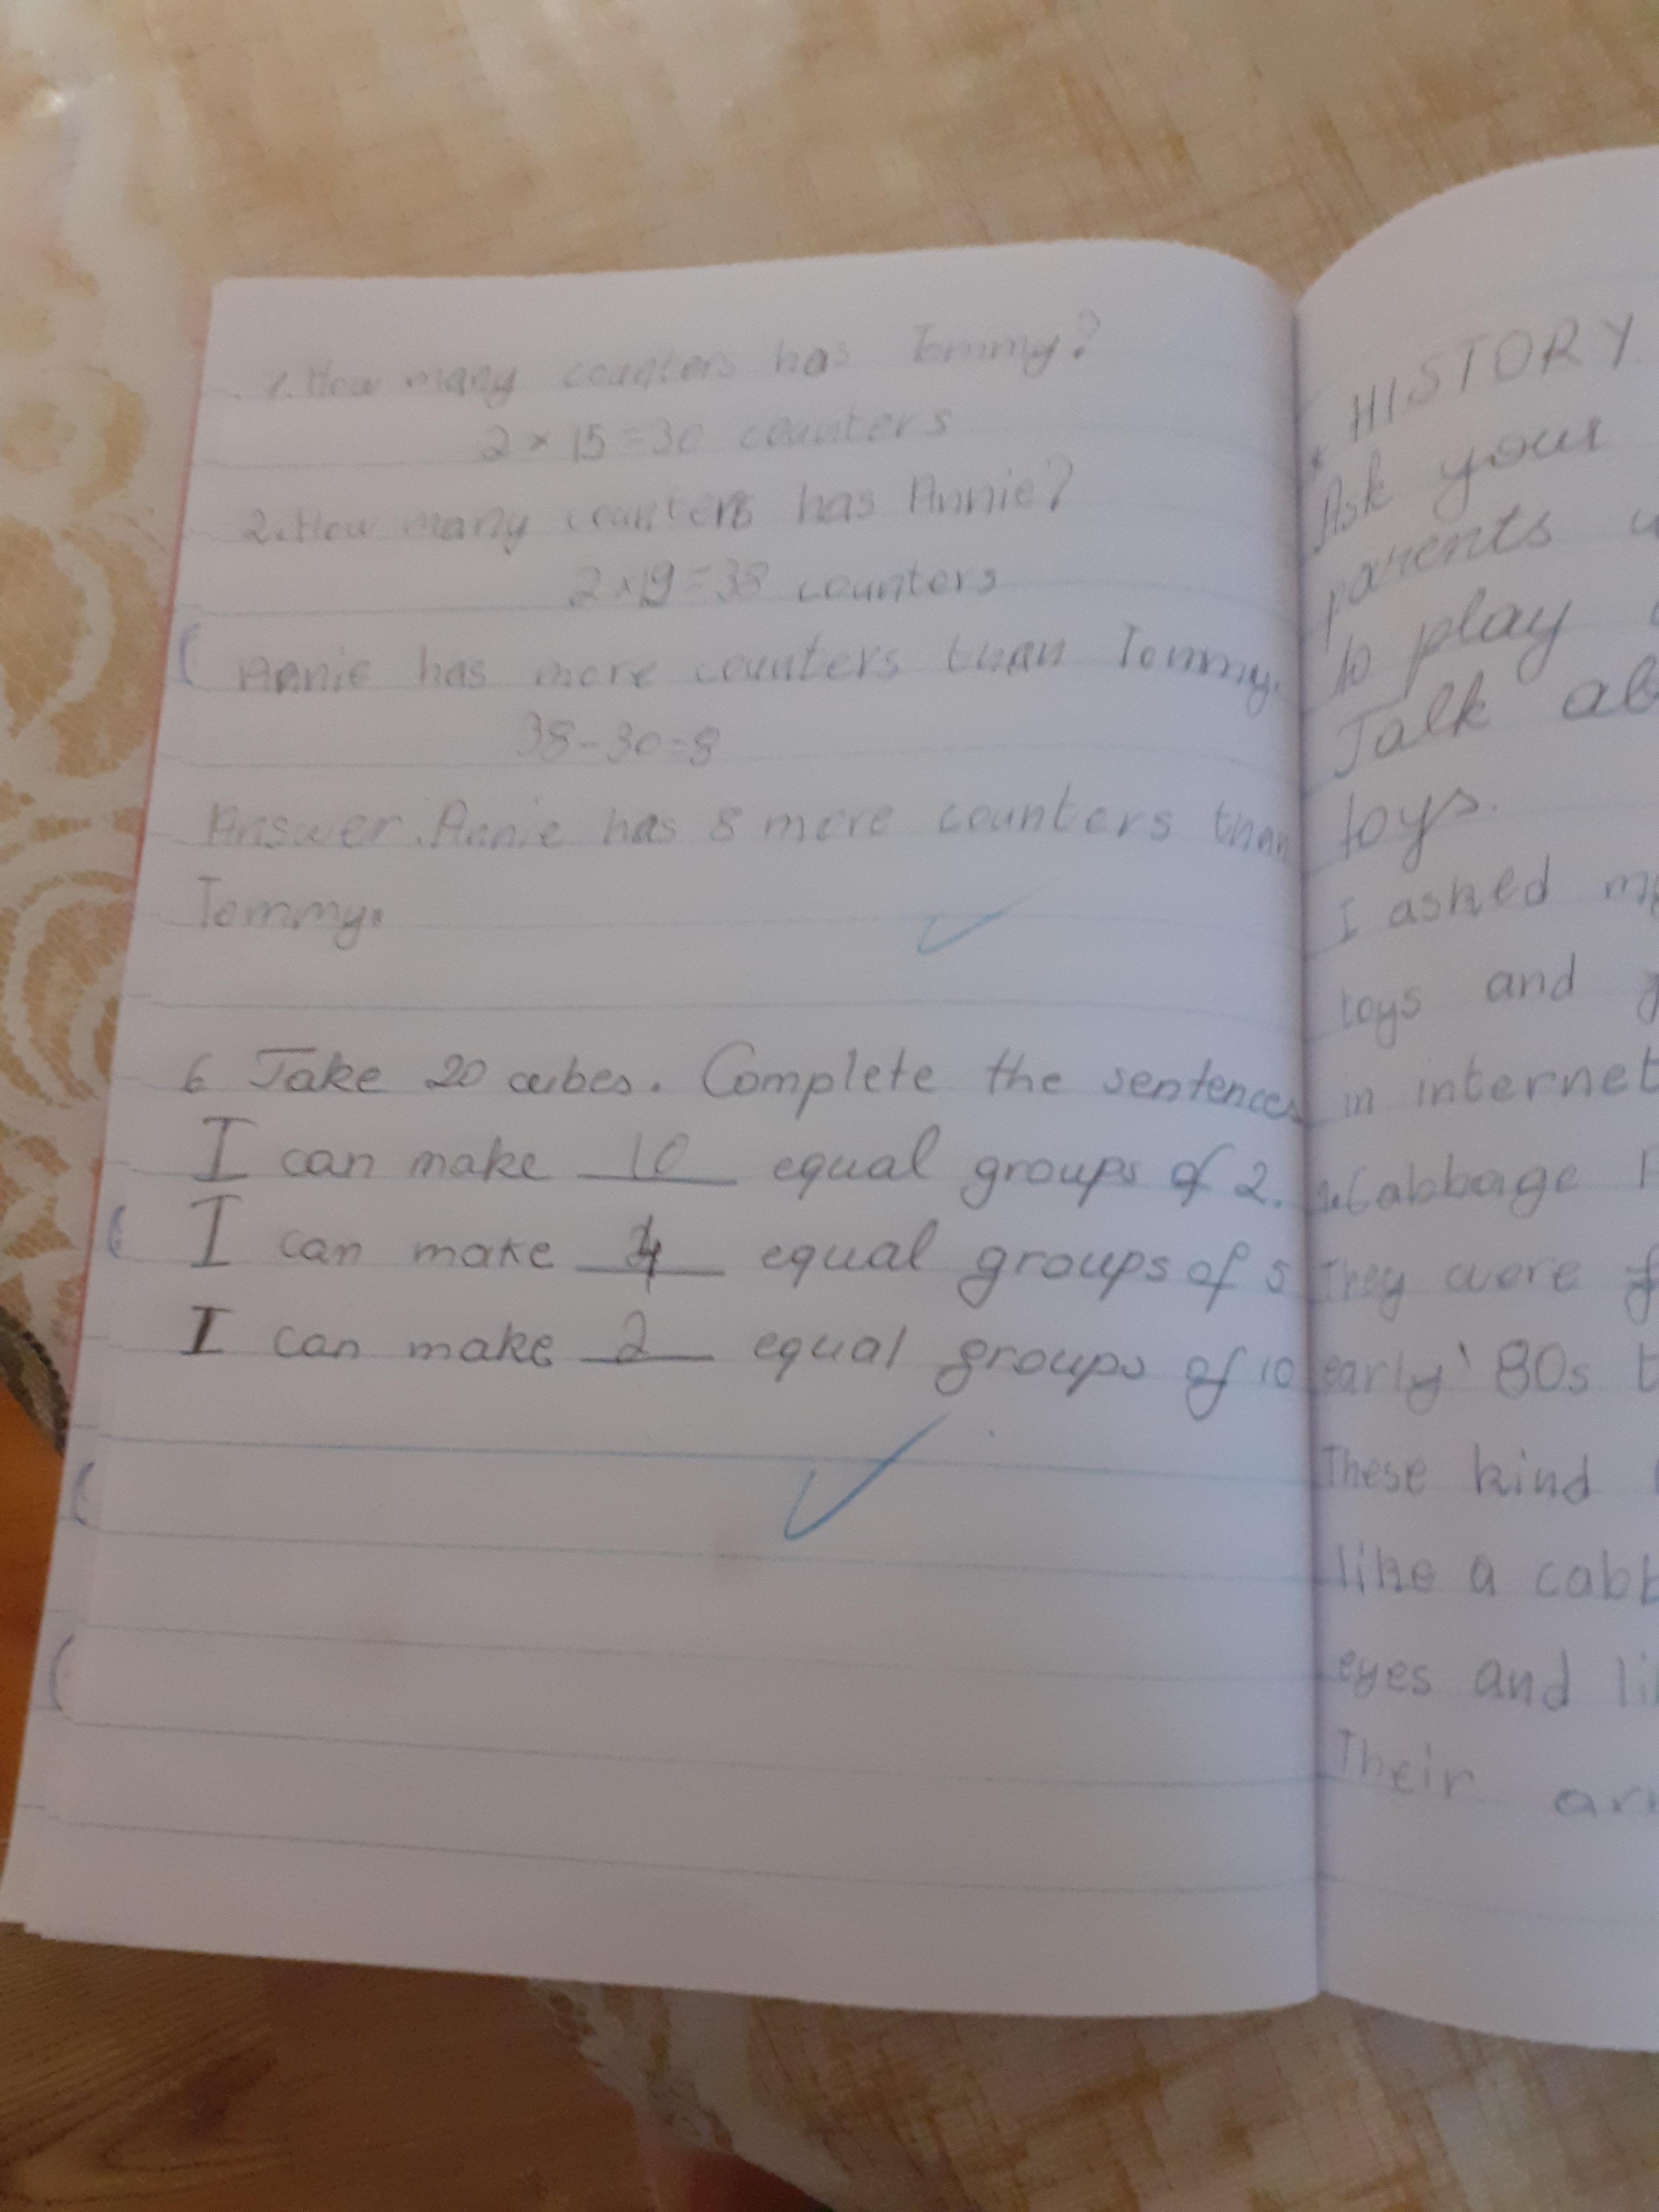 1. How many counters has Tommy?
2 × 15 = 30 counters
2. How many counters has Annie?
2 × 19 = 38 counters
Annie has more counters than Tommy.
38 - 30 = 8
Answer. Annie has 8 more counters than
Tommy.
6 Take 20 cubes. Complete the sentences
I can make 10 equal groups of 2.
I can make 4 equal groups of 5
I can make 2 equal groups of 10
HISTORY
Ask your
parents
to play
Talk
toys.
I asked
toys and
in internet
1. Cabbage
They were
early '80s
These kind
like a
eyes and
Their